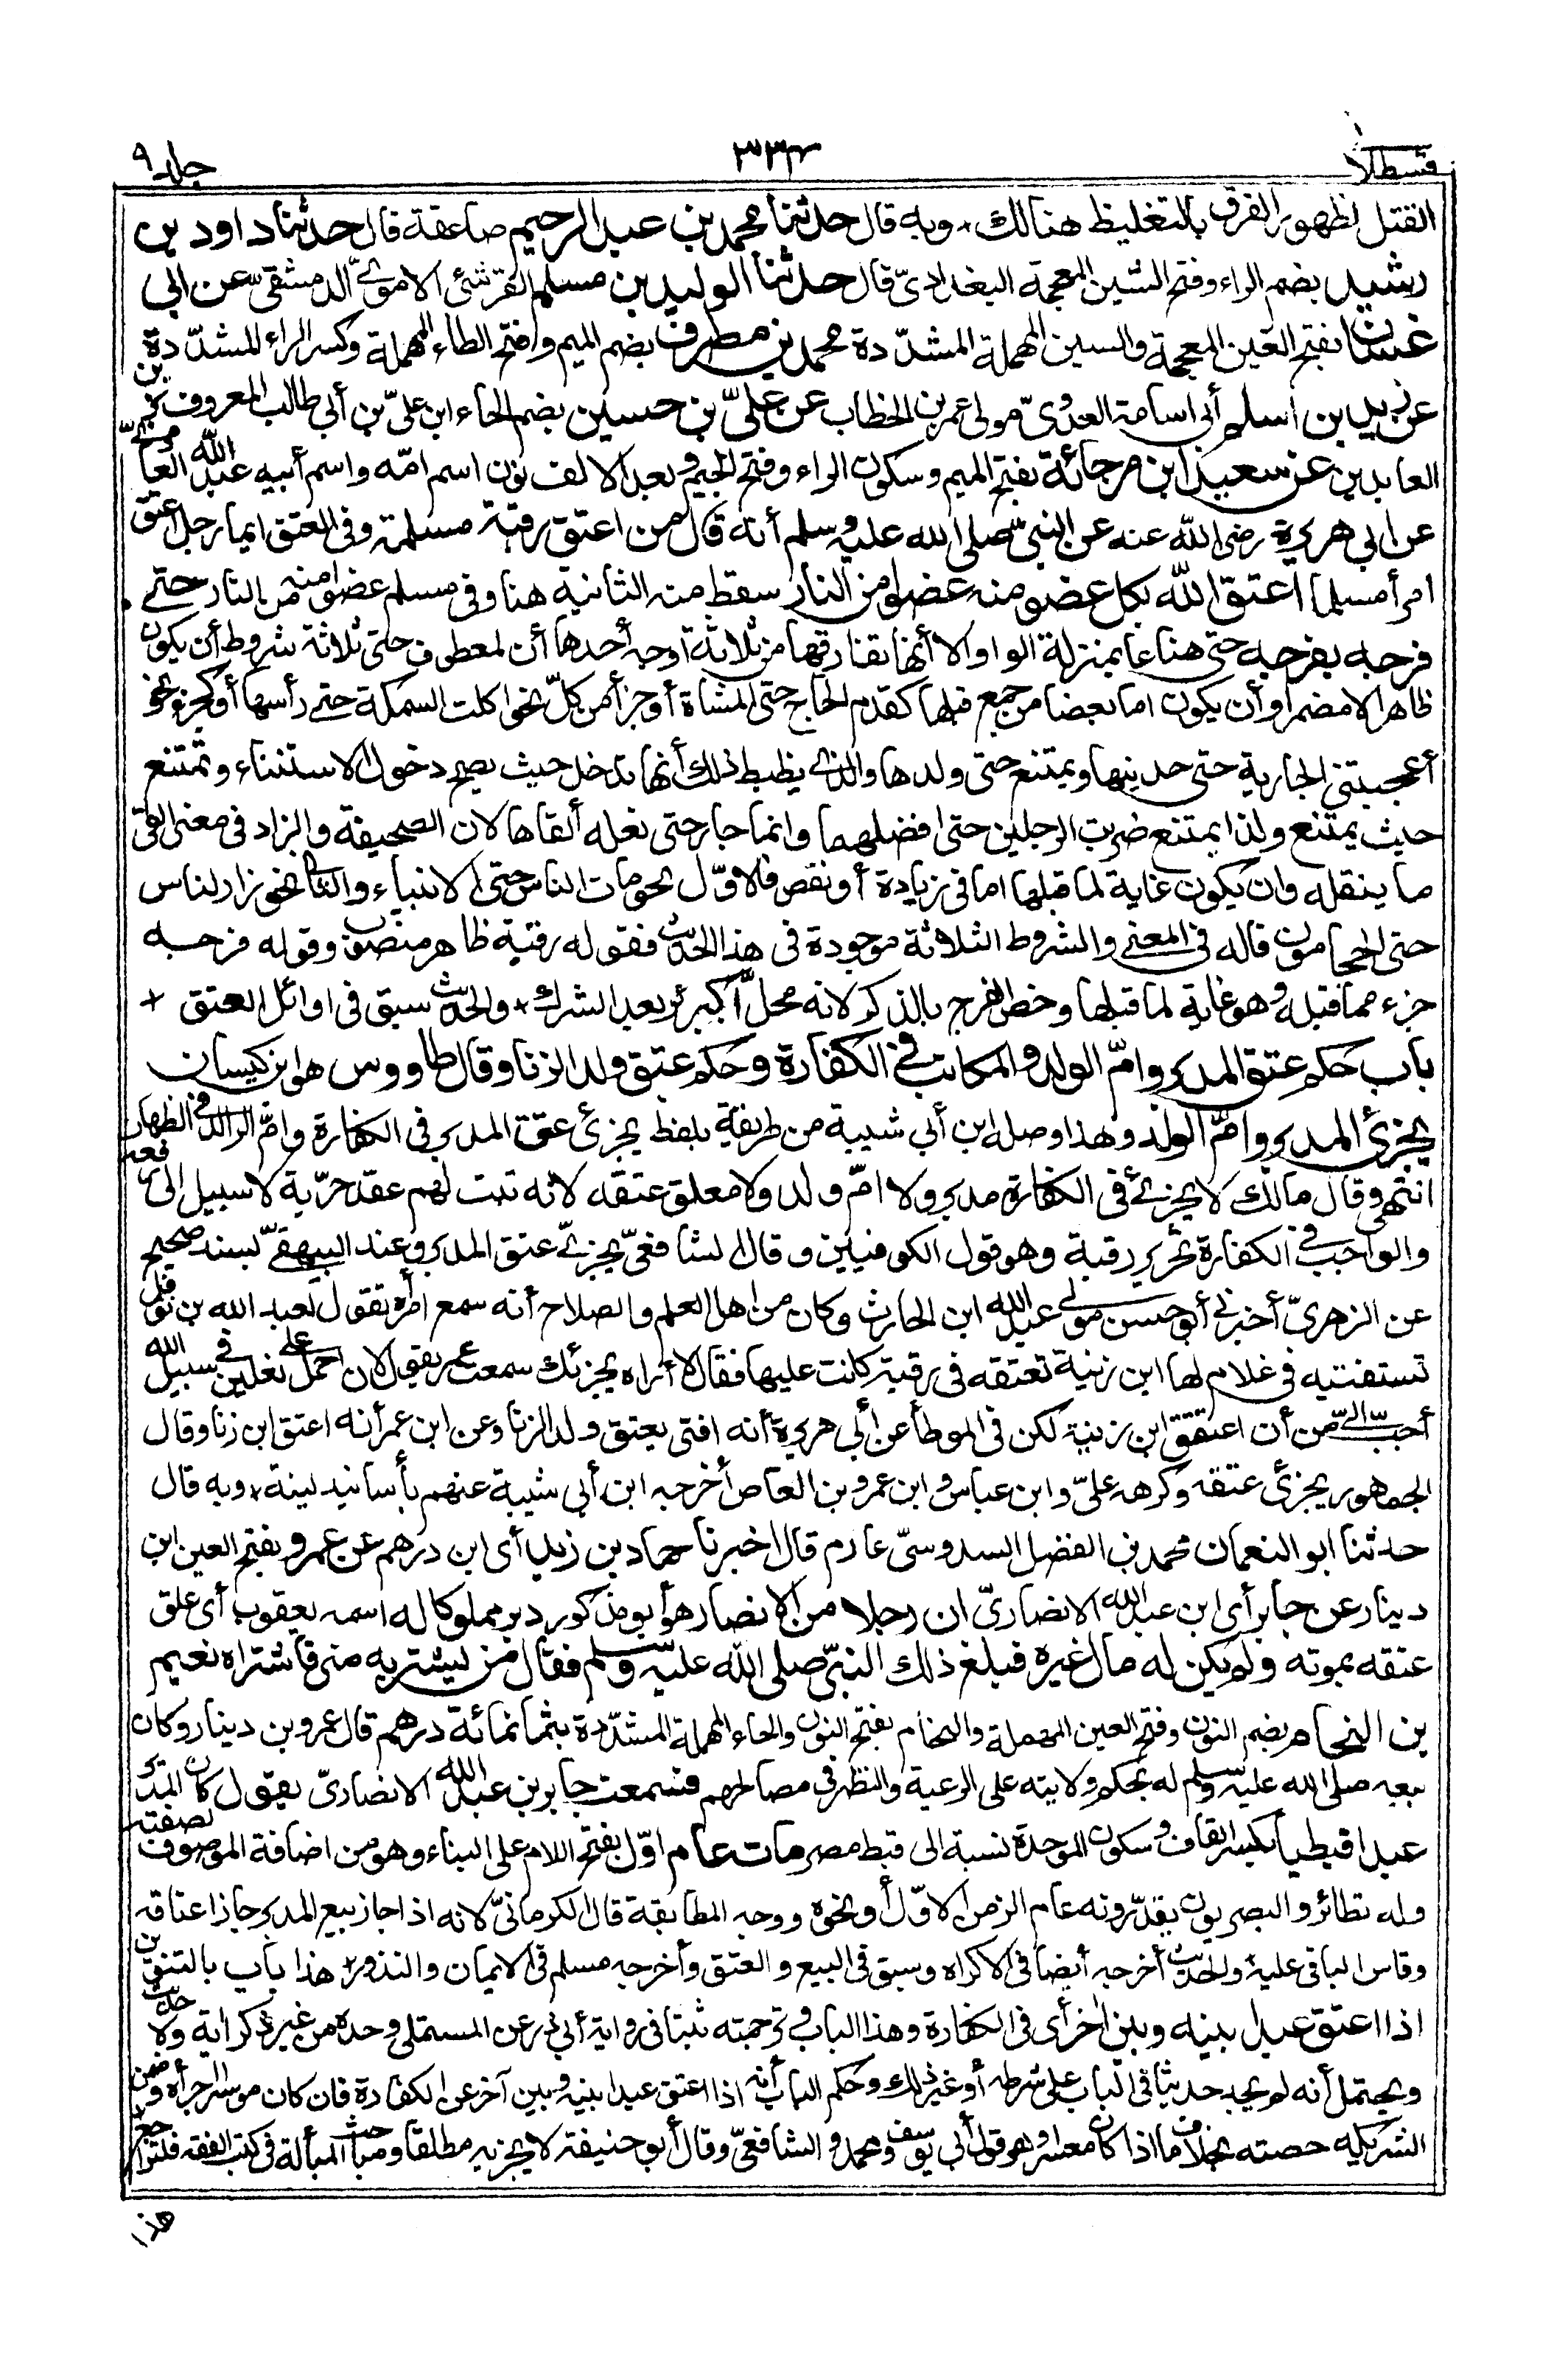 قسطلا ٣٣٤ جلد ٩
القتل لظهور الفرق بالتغليظ هنالك * وبه قال حدثنا محمد بن عبد الرحيم صاعقة قال حدثنا داود بن
رشيد بضم الراء وفتح الشين المعجمة البغدادىّ قال حدثنا الوليد بن مسلم القرشىّ الاموىّ الدمشقىّ عن ابى
غسان بفتح الغين المعجمة والسين المهملة المشدّدة محمد بن مطرف بضم الميم وفتح الطاء المهملة وكسر الراء المشدّدة
عن زيد بن اسلم أبى اسامة العدوىّ مولى عمر بن الخطاب عن علىّ بن حسين بضم الحاء ابن علىّ بن أبى طالب المعروف بزين
العابدين عن سعيد ابن مرجانة بفتح الميم وسكون الراء وفتح الجيم وبعد الالف نون اسم امّه واسم أبيه عبد الله العامرىّ
عن ابى هريرة رضى الله عنه عن النبىّ صلى الله عليه وسلم أنه قال من اعتق رقبة مسلمة وفى العتق ايما رجل اعتق
امرأ مسلما اعتق الله بكل عضو منه عضوا من النار سقط منه الثانية هنا وفى مسلم عضوا منه من النار حتى
فرجه بفرجه حتى هنا عا بمنزلة الواو الا أنها تفارقها من ثلاثة أوجه أحدها أن لمعطوف حتى ثلاثة شروط أن يكون
ظاهرا لا مضمرا وأن يكون اما بعضا من جمع قبلها كقدم الحاج حتى المشاة أو جزأ من كلّ نحو اكلت السمكة حتى رأسها أو كجزء نحو
أعجبتنى الجارية حتى حديثها ويمتنع حتى ولدها والذى يظبط ذلك أنها تدخل حيث يصح دخول الاستثناء وتمتنع
حيث يمتنع ولذا يمتنع ضربت الرجلين حتى افضلهما وانما جاز حتى نعله ألقاها لان الصحيفة والزاد فى معنى القى
ما ينقله وان يكون غاية لما قبلها اما فى زيادة أو نقص فالاوّل نحو مات الناس حتى الانبياء والثانى نحو زارلناس
حتى الحجامون قاله فى المعنى والشروط الثلاثة موجودة فى هذا الحديث فقوله رقبة ظاهر منصوب وقوله فرجه
جزء مما قبله وهو غاية لما قبلها وخص الفرج بالذكر لانه محلّ أكبر بعد الشرك * والحديث سبق فى اوائل العتق *
باب حكم عتق المدبر وامّ الولد والمكاتب فى الكفارة وحكم عتق ولد الزنا وقال طاووس هو ابن كيسان
يجزئ المدبر وامّ الولد وهذا وصله ابن أبى شيبة من طريقه بلفظ يجزئ عتق المدبر فى الكفارة وامّ الولد فى الظهار
انتهى وقال مالك لا يجزئ فى الكفارة مدبر ولا امّ ولد ولا معلق عتقه لانه ثبت لهم عقد حرّية لا سبيل الى رفعه
والواجب فى الكفارة تحرير رقبة وهو قول الكوفيين وقال الشافعىّ يجزئ عتق المدبر وعند البيهقىّ بسند صحيح
عن الزهرىّ أخبرنى أبو حسن مولى عبد الله ابن الحارث وكان من اهل العلم والصلاح أنه سمع امرأة تقول لعبد الله بن نوفل
تستفتيه فى غلام لها ابن زنية تعتقه فى رقبة كانت عليها فقال لا أراه يجزئك سمعت عمر يقول لان احمل على نعلين فى سبيل الله
أحبّ الىّ من أن اعتق ابن زنية لكن فى الموطأ عن أبى هريرة أنه افتى بعتق ولد الزنا وعن ابن عمر أنه اعتق ابن زنا وقال
الجمهور يجزئ عتقه وكرهه علىّ وابن عباس وابن عمرو بن العاص أخرجه ابن أبى شيبة عنهم بأسانيد لينة * وبه قال
حدثنا ابو النعمان محمد بن الفضل السدوسىّ عارم قال اخبرنا حماد بن زيد أى ابن درهم عن عمرو بفتح العين ابن
دينار عن جابر أى ابن عبد الله الانصارىّ ان رجلا من الانصار هو أبو مذكور دبر مملوكا له اسمه يعقوب أى علق
عتقه بموته ولم يكن له مال غيره فبلغ ذلك النبىّ صلى الله عليه وسلم فقال من يشتريه منى فاشتراه نعيم
بن النحام بضم النون وفتح العين المهملة والنحام بفتح النون والحاء المهملة المشدّدة بثمانمائة درهم قال عمرو بن دينار وكان
بيعه صلى الله عليه وسلم له بحكم ولايته على الرعية والنظر فى مصالحهم فسمعت جابر بن عبد الله الانصارىّ يقول كان المدبر
عبدا قبطيا بكسر القاف وسكون الموحدة نسبة الى قبط مصر مات عام اوّل بفتح اللام على البناء وهو من اضافة الموصوف لصفته
وله نظائر والبصريون يقدّرونه عام الزمن الاوّل أو نحوه ووجه المطابقة قال الكرمانىّ لانه اذا جاز بيع المدبر جاز اعتاقه
وقاس الباقى عليه والحديث أخرجه أيضا فى الاكراه وسبق فى البيع والعتق وأخرجه مسلم فى الايمان والنذور * هذا باب بالتنوين
اذا اعتق عبدا بينه وبين اخر أى فى الكفارة وهذا الباب وترجمته ثبتا فى رواية أبى ذر عن المستملى وحده من غير ذكر اية ولا حديث
ويحتمل أنه لم يجد حديثا فى الباب على شرطه أو غير ذلك وحكم الباب أنه اذا اعتق عبدا بينه وبين آخر عن الكفارة فان كان موسرا جزأه وضمن
الشريكه حصته بخلاف ما اذا كان معسرا وهو قول أبى يوسف ومحمد والشافعىّ وقال أبو حنيفة لا يجزيه مطلقا ومباحث المسألة فى كتب الفقه فلتراجع
هذا